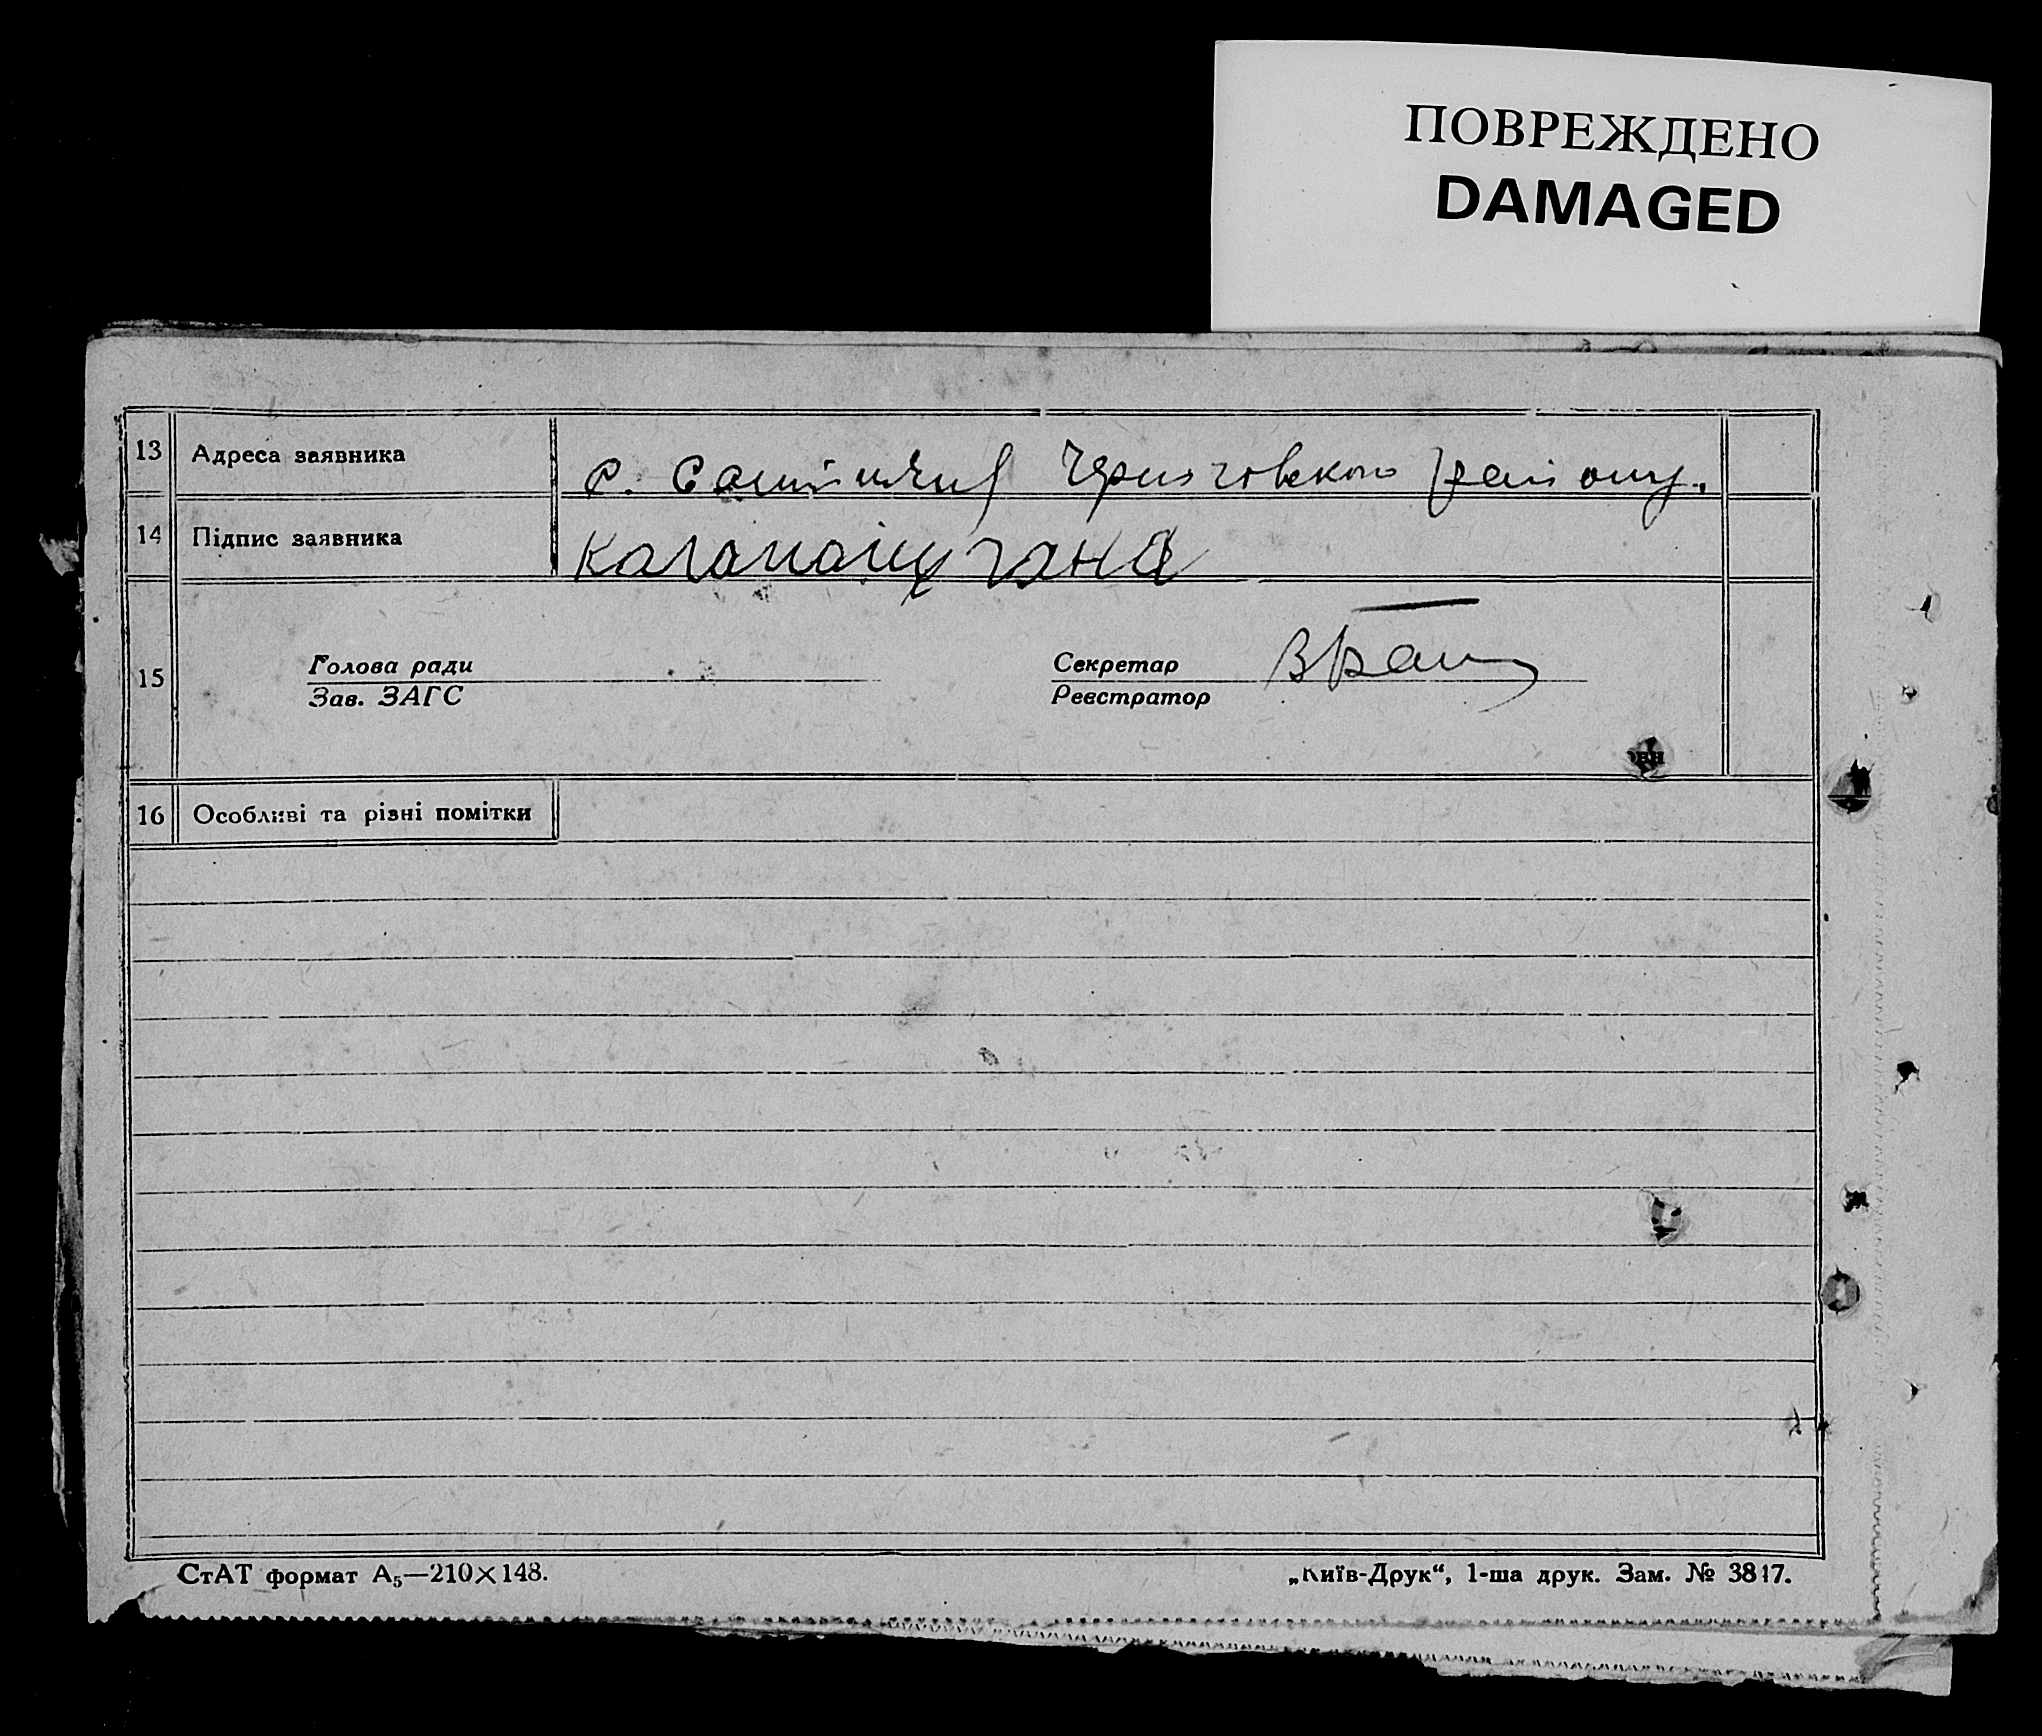 ПОВРЕЖДЕНО
DAMAGED
13 Адреса заявника с. Черніговського району.
14 Підпис заявника
15 Голова ради Секретар
Зав. ЗАГС Реєстратор
16 Особливі та різні помітки
СтАТ формат А₅—210×148. „Київ-Друк“, 1-ша друк. Зам. № 3817.